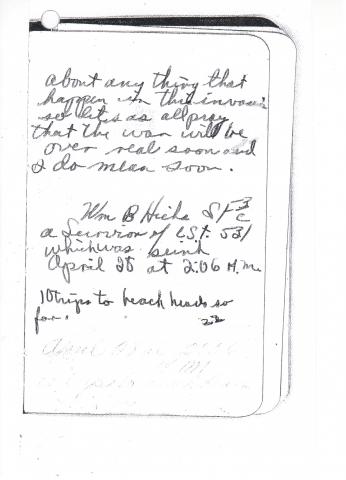 about any thing that
happen in this invasion
so let us as all pray
that the war will be
over real soon and
I do mean soon.
Wm B Hicks SF 3/c
a Survivor of LST. 531
which was sunk
April 28 at 2:06 A.M.
10 trips to beach heads so
far.
April